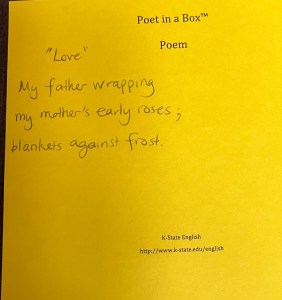 Poet in a Box™
Poem
"Love"
My father wrapping
my mother's early roses;
blankets against frost.
K-State English
http://www.k-state.edu/english